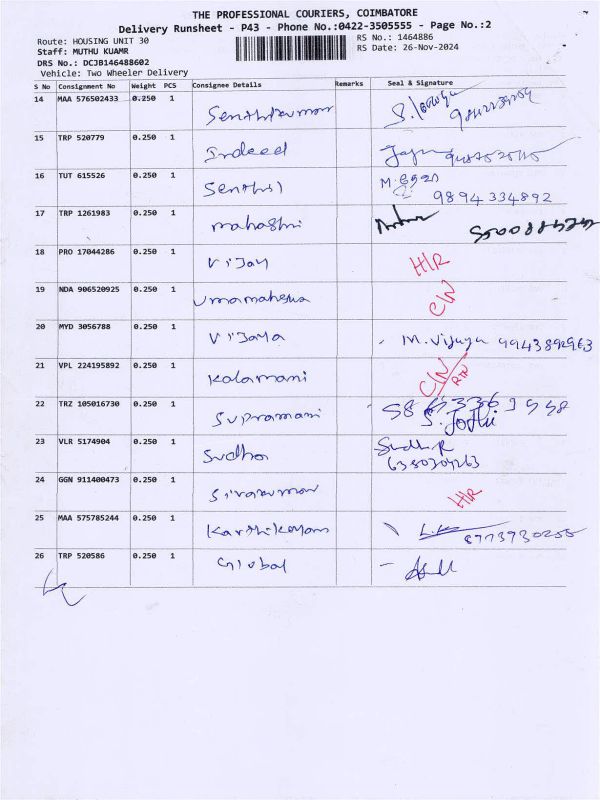 THE PROFESSIONAL COURIERS, COIMBATORE
Delivery Runsheet - P43 - Phone No.:0422-3505555 - Page No.:2
Route: HOUSING UNIT 30 RS No.: 1464886
Staff: MUTHU KUAMR RS Date: 26-Nov-2024
DRS No.: DCJB146488602
Vehicle: Two Wheeler Delivery
S No Consignment No Weight PCS Consignee Details Remarks Seal & Signature
14 MAA 576502433 0.250 1 Senthilkumar
15 TRP 520779 0.250 1 Indeed
16 TUT 615526 0.250 1 Senthil 9894334892
17 TRP 1261983 0.250 1 mahashri
18 PRO 17044286 0.250 1 Vijay H/R
19 NDA 906520925 0.250 1 Umamahesua C/N
20 MYD 3056788 0.250 1 Vijaya M. Vijaya 9943892963
21 VPL 224195892 0.250 1 Kalamani C/N
22 TRZ 105016730 0.250 1 Supramani S. Jothi
23 VLR 5174904 0.250 1 Sudha Sudha.R
6380304263
24 GGN 911400473 0.250 1 Sivakumar H/R
25 MAA 575785244 0.250 1 Karthikeyan 8973730255
26 TRP 520586 0.250 1 Global